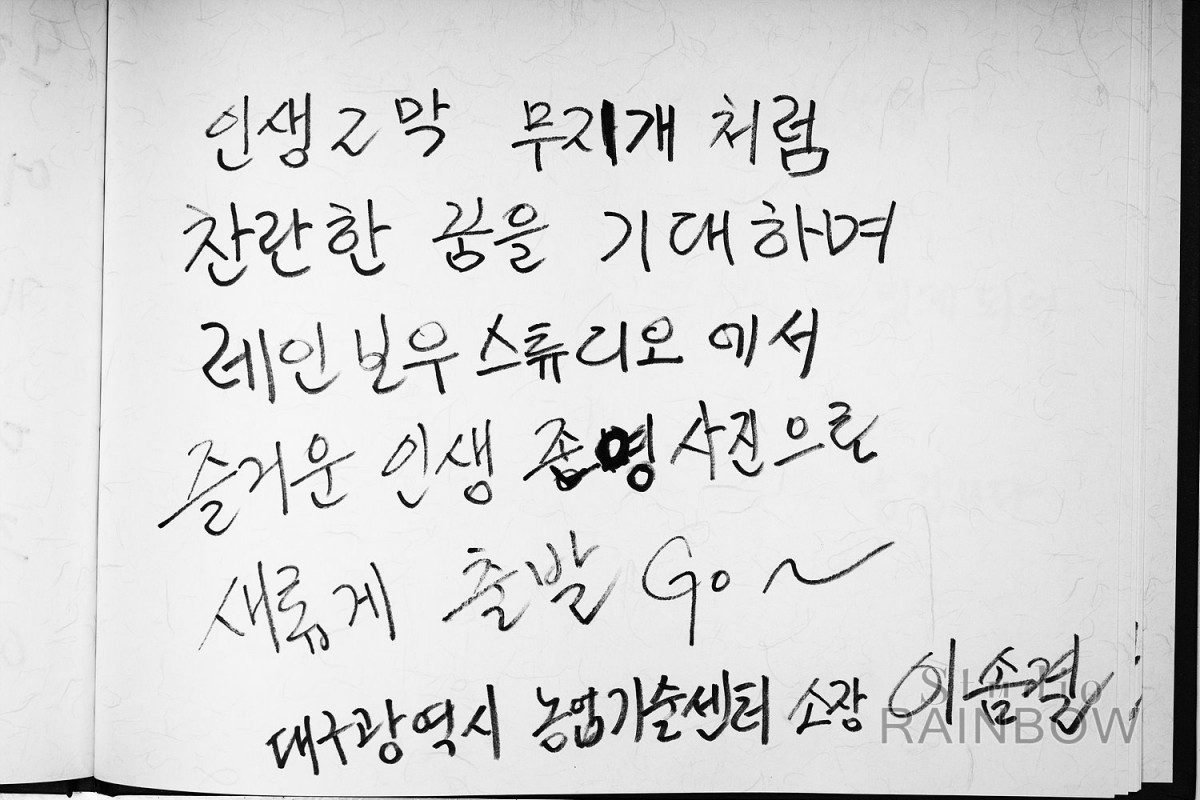 인생2막 무지개 처럼
찬란한 꿈을 기대하며
레인보우스튜디오에서
즐거운 인생 사진으로
새롭게 출발 Go~
대구광역시 농업기술센터 소장 이솜결
Studio
RAINBOW